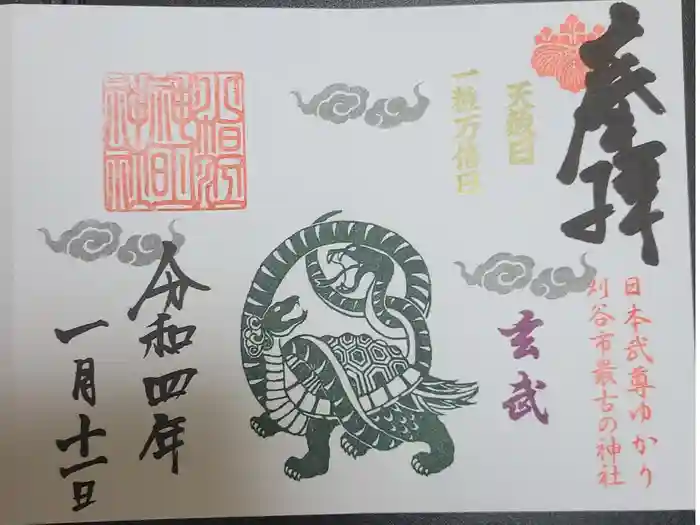 奉拝
日本武尊ゆかり
刈谷市最古の神社
天赦日
一粒万倍日
玄武
令和四年
一月十一日